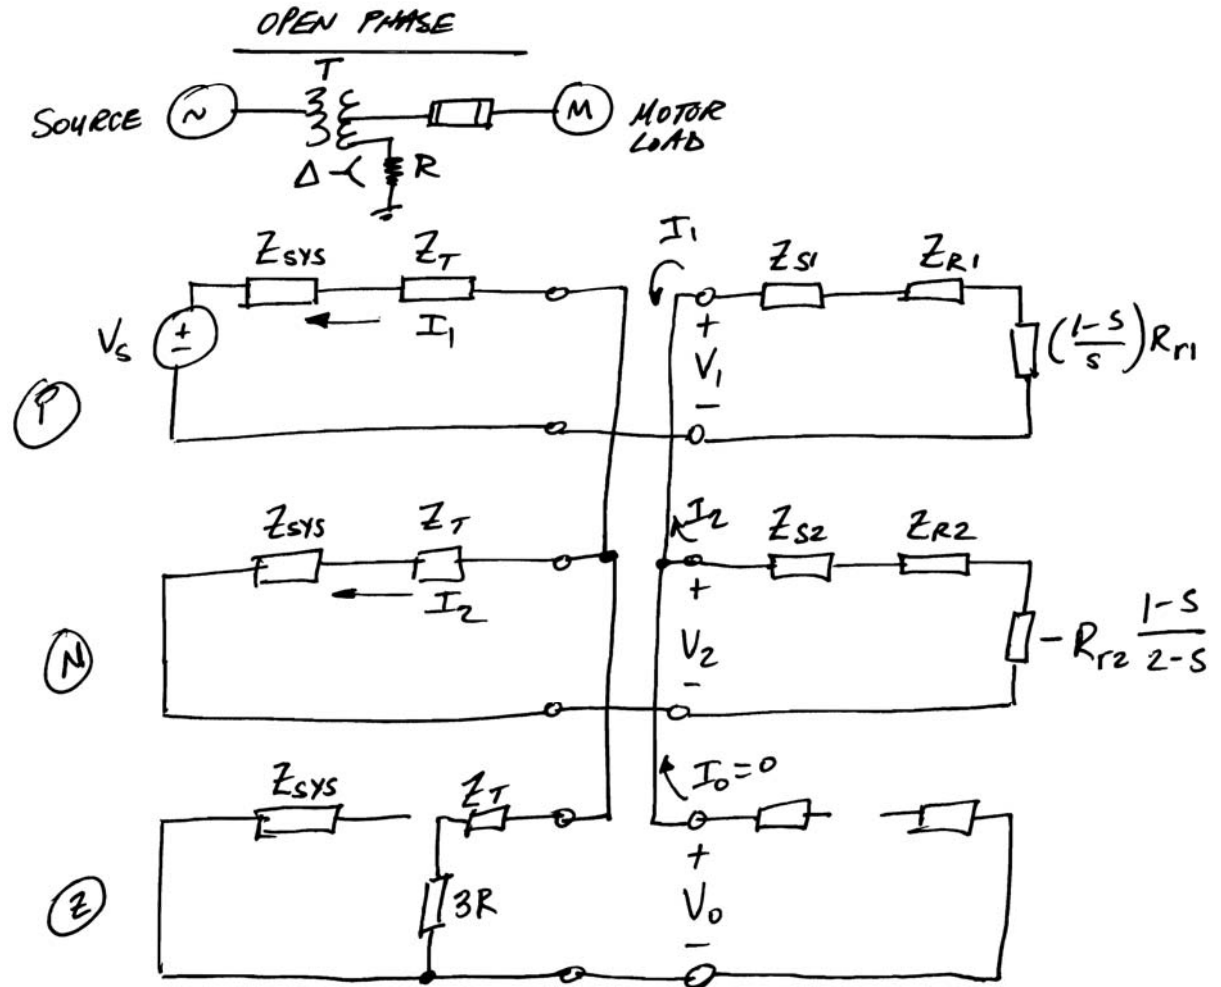 OPEN PHASE
T
SOURCE ~ M MOTOR LOAD
Δ-Y R
I1
ZSYS ZT ZS1 ZR1
VS + - I1 + V1 - (1-S/S)Rr1
P
I2
ZSYS ZT ZS2 ZR2
I2 + V2 - -Rr2 1-S/2-S
N
I0=0
ZSYS ZT
3R + V0 -
Z